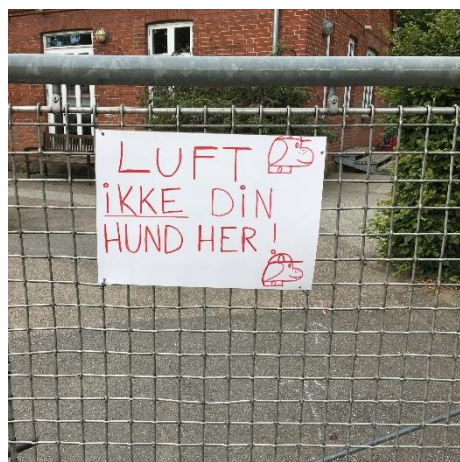 LUFT
iKKE DiN
HUND HER!